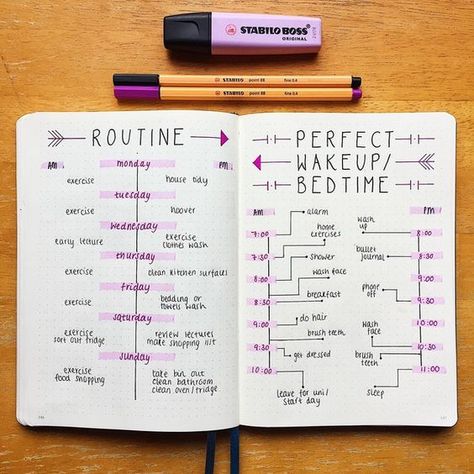 STABILO BOSS
ORIGINAL
STABILO point 88 fine 0.4
STABILO point 88 fine 0.4
ROUTINE
AM
PM
monday
exercise
house tidy
tuesday
exercise
hoover
wednesday
early lecture
exercise
clothes wash
thursday
exercise
clean kitchen surfaces
friday
exercise
bedding or
towels wash
saturday
exercise
sort out fridge
review lectures
make shopping list
sunday
exercise
food shopping
take bin out
clean bathroom
clean oven/fridge
PERFECT
WAKEUP/
BEDTIME
AM
PM
alarm
7:00
home
exercises
7:30
shower
8:00
wash face
8:30
breakfast
9:00
do hair
brush teeth
9:30
get dressed
10:00
leave for uni/
start day
wash
up
8:00
bullet
journal
8:30
9:00
phone
off
9:30
10:00
wash
face
10:30
brush
teeth
11:00
sleep